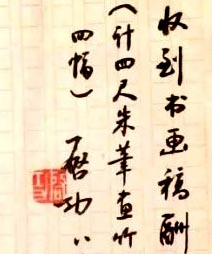 收到书画稿酬
(计四尺朱笔直竹
四幅)
启功